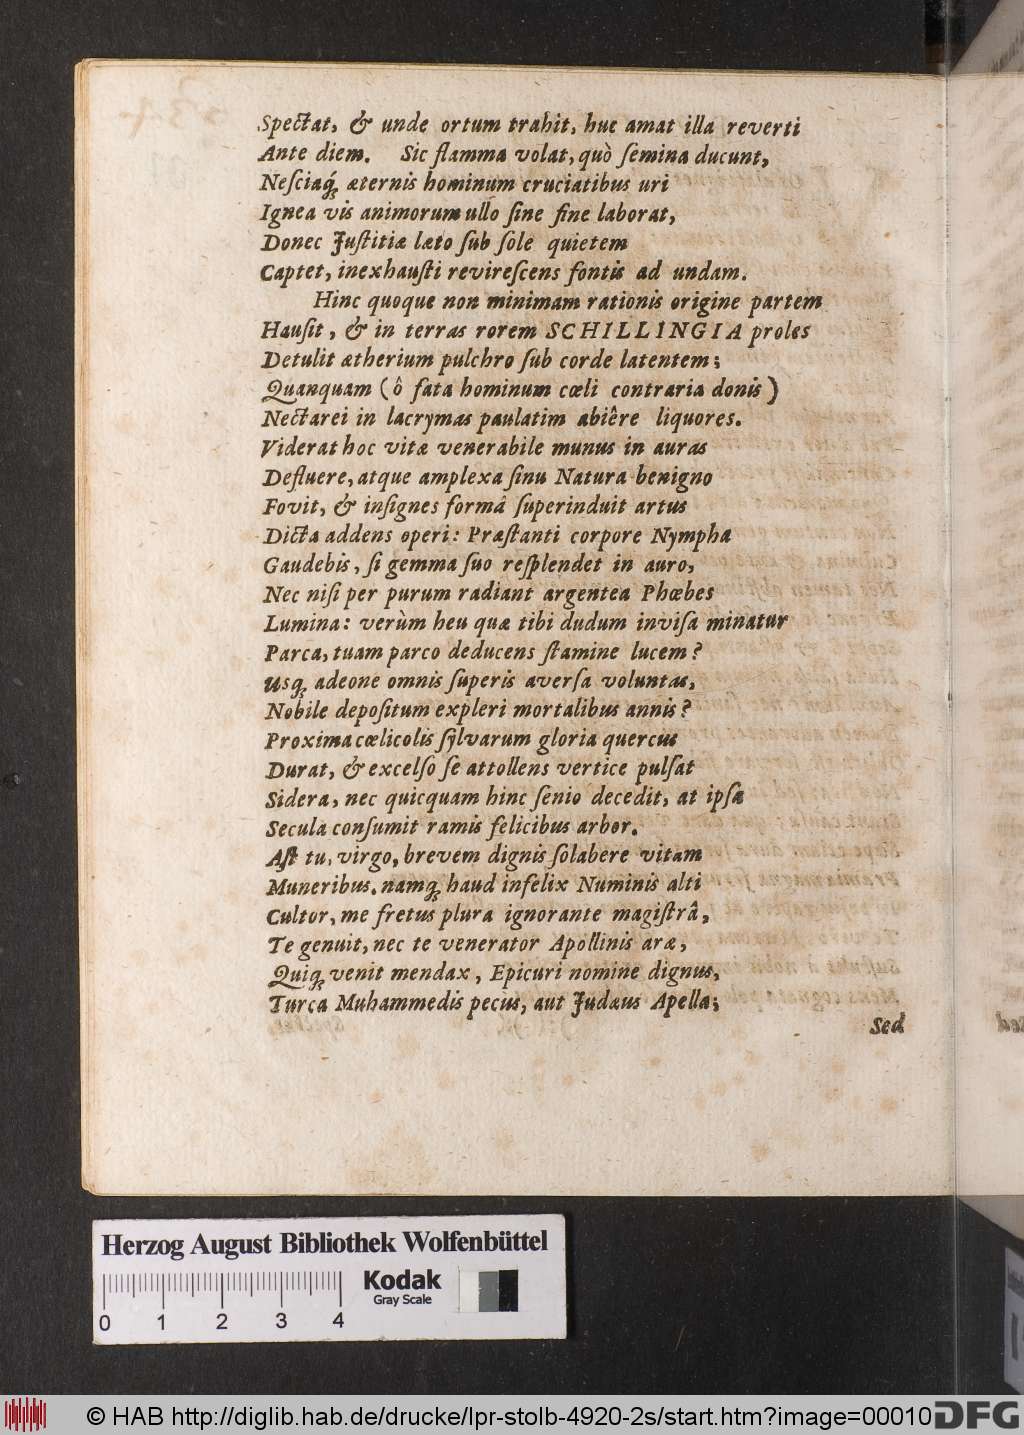 Spectat, & unde ortum trahit, huc amat illa reverti
Ante diem. Sic flamma volat, quò ſemina ducunt,
Neſciaq́; æternis hominum cruciatibus uri
Ignea vis animorum ullo ſine fine laborat,
Donec Juſtitiæ læto ſub ſole quietem
Captet, inexhauſti revireſcens fontis ad undam.
Hinc quoque non minimam rationis origine partem
Hauſit, & in terras rorem SCHILLINGIA proles
Detulit ætherium pulchro ſub corde latentem;
Quanquam (ô fata hominum cœli contraria donis)
Nectarei in lacrymas paulatim abiêre liquores.
Viderat hoc vitæ venerabile munus in auras
Defluere, atque amplexa ſinu Natura benigno
Fovit, & inſignes formâ ſuperinduit artus
Dicta addens operi: Præſtanti corpore Nympha
Gaudebis, ſi gemma ſuo reſplendet in auro,
Nec niſi per purum radiant argentea Phœbes
Lumina: verùm heu quæ tibi dudum inviſa minatur
Parca, tuam parco deducens ſtamine lucem?
Usq; adeone omnis ſuperis averſa voluntas,
Nobile depoſitum expleri mortalibus annis?
Proxima cœlicolis ſylvarum gloria quercus
Durat, & excelſo ſe attollens vertice pulſat
Sidera, nec quicquam hinc ſenio decedit, at ipſa
Secula conſumit ramis felicibus arbor.
Aſt tu, virgo, brevem dignis ſolabere vitam
Muneribus. namq; haud infelix Numinis alti
Cultor, me fretus plura ignorante magiſtrâ,
Te genuit, nec te venerator Apollinis aræ,
Quiq; venit mendax, Epicuri nomine dignus,
Turca Muhammedis pecus, aut Judæus Apella;
Sed
Herzog August Bibliothek Wolfenbüttel
Kodak
Gray Scale
0 1 2 3 4
© HAB http://diglib.hab.de/drucke/lpr-stolb-4920-2s/start.htm?image=00010
DFG